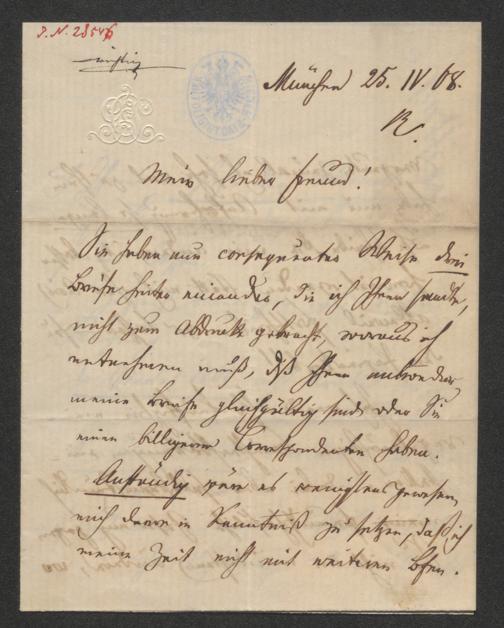 J. N. 28546
wichtig
München 25. IV. 68.
R.
Mein lieber Freund!
Sie haben nun consequenter Weise drei
Briefe hinter einander, die ich Ihnen sandte,
nicht zum Abdruck gebracht, woraus ich
entnehmen muß, daß Ihnen entweder
meine Briefe gleichgültig sind oder Sie
einen billigeren Correspondenten haben.
Anständig wäre es wenigstens gewesen,
mich davon in Kenntniß zu setzen, daß ich
meine Zeit nicht mit weiteren